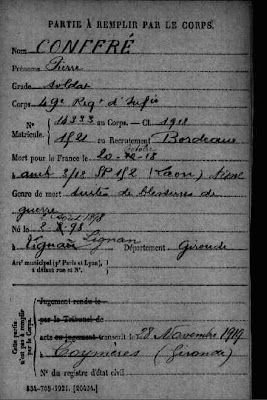 PARTIE À REMPLIR PAR LE CORPS.
Nom CONFFRÉ
Prénoms Pierre
Grade soldat
Corps 49e Regt d'Infie
N° 14333 au Corps. — Cl. 1918
Matricule. 1521 au Recrutement Bordeaux
Octobre
Mort pour la France le 20-10-18
à amb 3/18 SP 172 (Laon) Aisne
Genre de mort suites de blessures de
guerre
Né le 2 X 98
à Lignan Département Gironde
Arr' municipal (pr Paris et Lyon),
à défaut rue et N°.
Cette partie n'est pas à remplir par le Corps.
Jugement rendu le
par le Tribunal de
acte ou jugement transcrit le 28 Novembre 1919
(Gironde)
N° du registre d'état civil
534-708-1921. [20434.]